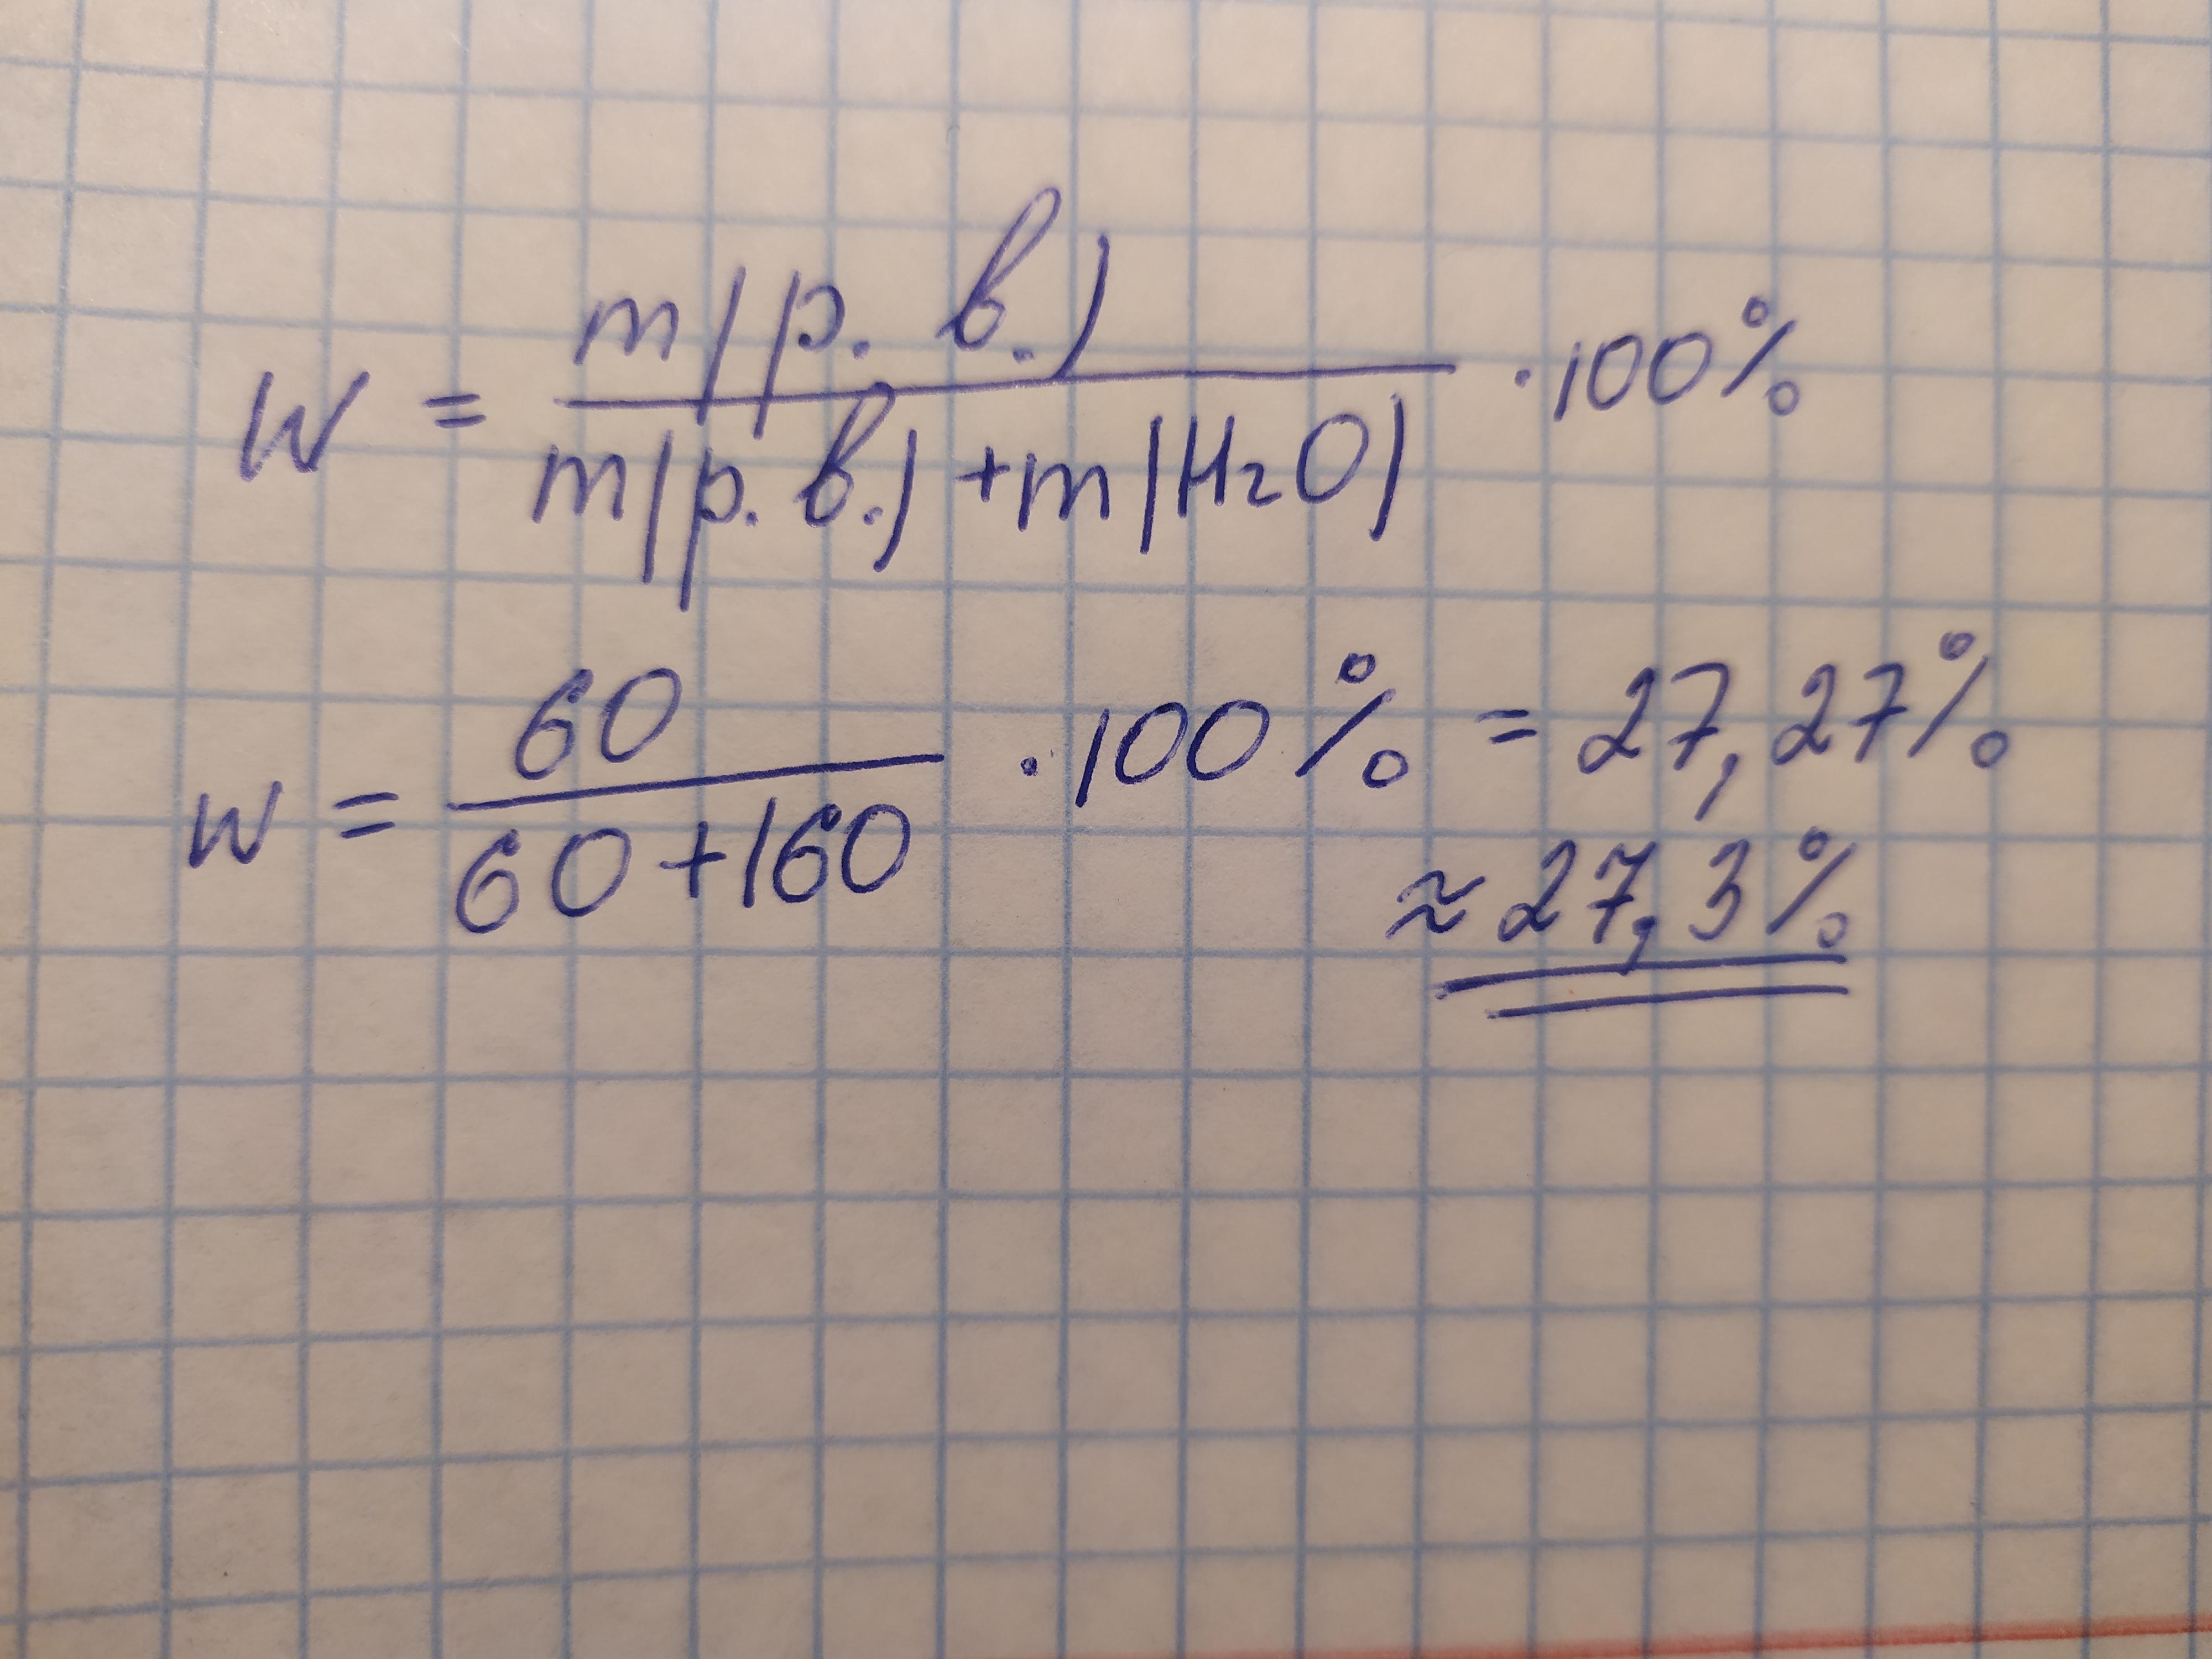 w = m(р. в.) / m(р. в.) + m(H₂O) · 100%
w = 60 / 60+160 · 100% = 27,27%
≈ 27,3%